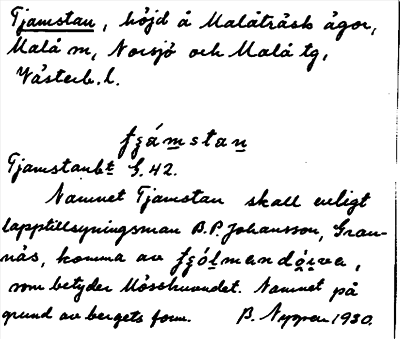 Tjamstan, höjd å Malåträsk ägor,
Malå sn, Norsjö och Malå tg,
Västerb. l.
Tjamstanbt G. 42.
Namnet Tjamstan skall enligt
lapptillsyningsman B.P. Johansson, Gran-
näs, komma av
som betyder Mösshuvudet. Namnet på
grund av bergets form. B. Nygren 1930.